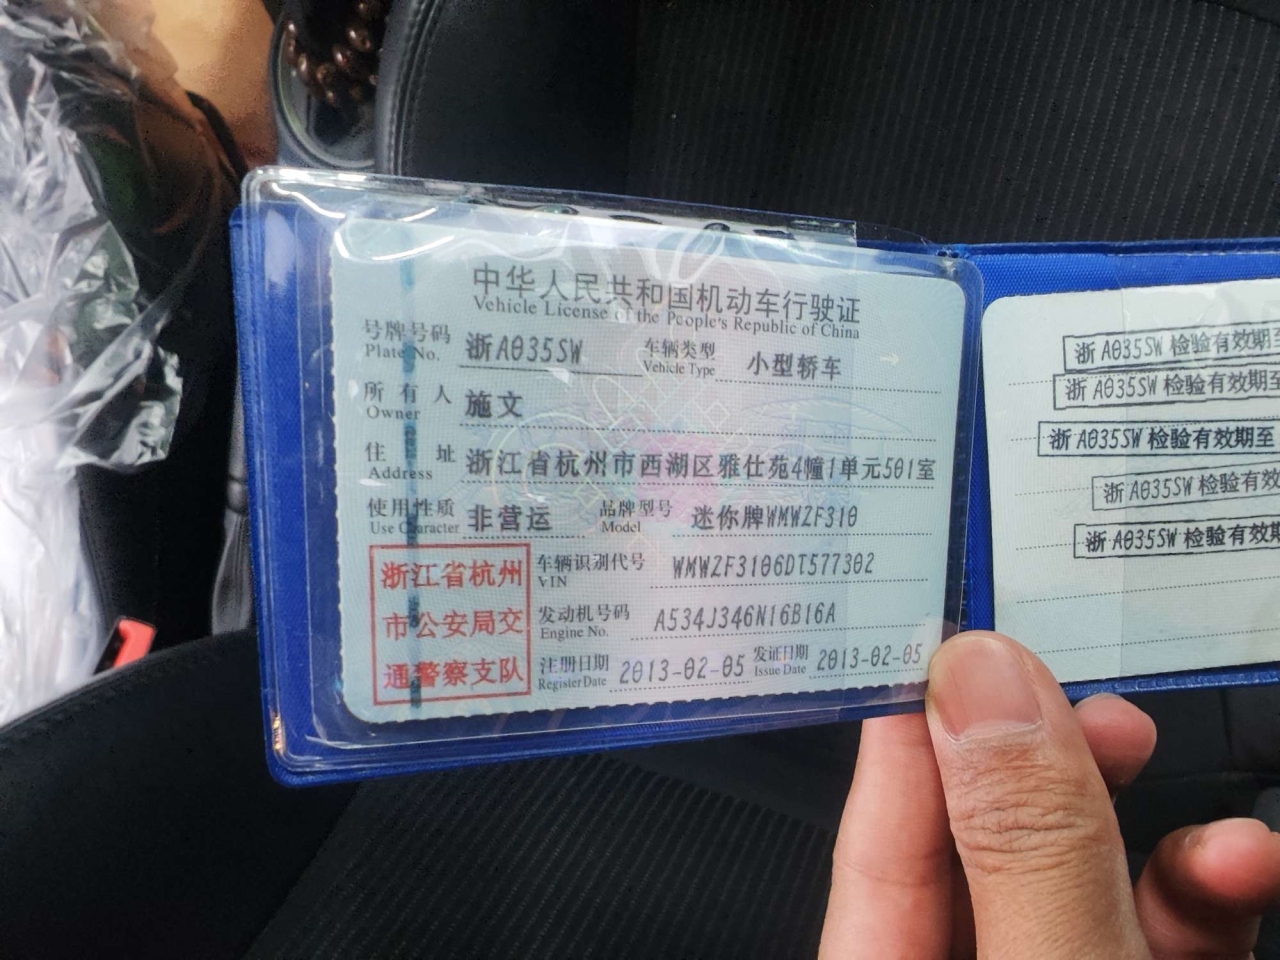 中华人民共和国机动车行驶证
Vehicle License of the People's Republic of China
号牌号码 浙A035SW 车辆类型 小型轿车
Plate No. Vehicle Type
所有人 施文
Owner
住址 浙江省杭州市西湖区雅仕苑4幢1单元501室
Address
使用性质 非营运 品牌型号 迷你牌WMWZF310
Use Character Model
浙江省杭州
市公安局交
通警察支队
车辆识别代号 WMWZF3106DT577302
VIN
发动机号码 A534J346N16B16A
Engine No.
注册日期 2013-02-05 发证日期 2013-02-05
Register Date Issue Date
浙A035SW 检验有效期至
浙A035SW 检验有效期至
浙A035SW 检验有效期至
浙A035SW 检验有效
浙A035SW 检验有效期